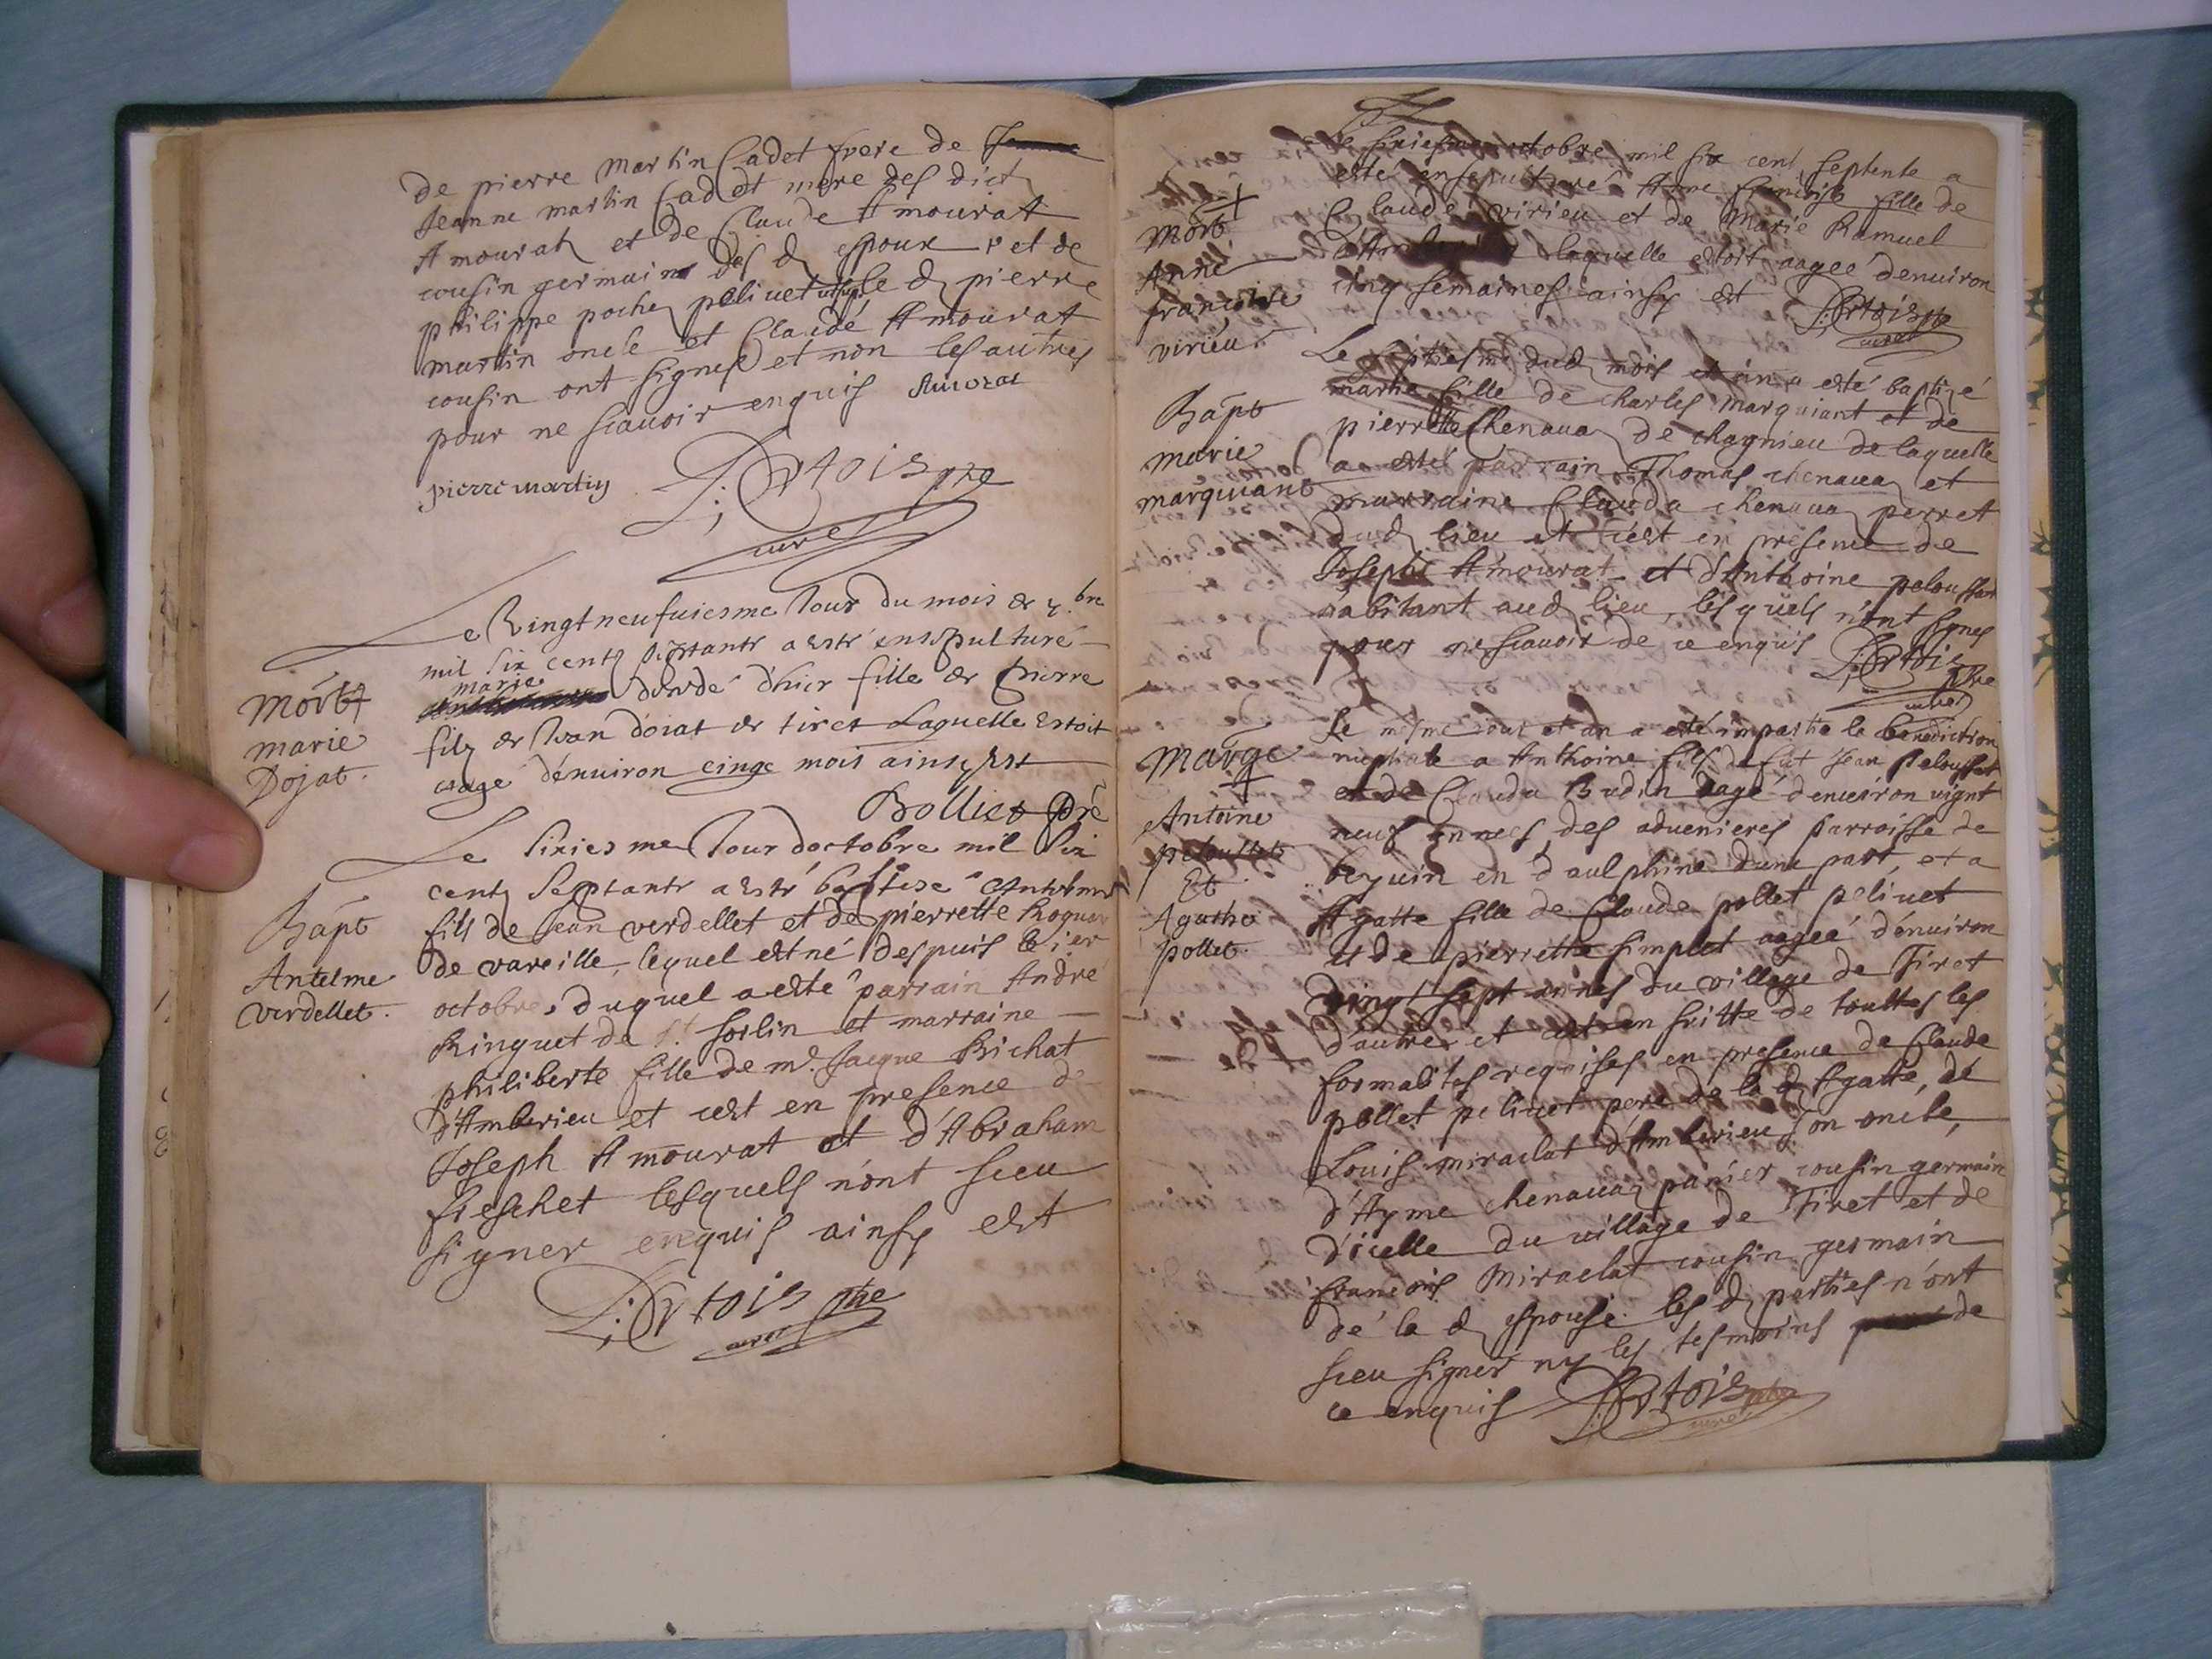 de pierre martin Cadet frere de
Jeanne martin Cadet mere des dict
Amourat et de Claude Amourat
cousin germain des d espoux et de
philippe pochez pelivet le d pierre
martin oncle et Claude Amourat
cousin ont signes et non les autres
pour ne scauoir enquis Amorat
pierre martin L: Ortois pre
curé
Le Vingt neufuiesme Jour du mois de 7.bre
mil six centz septante a esté ensepulturé
marie
decedé d'hier fille de Pierre
filz de Jean doiat de tiret Laquelle estoit
eage d'enuiron cinqe mois ainsy est
Bollier Pre
Mort +
marie
Dojat.
Le sixiesme Jour doctobre mil six
centz septante a esté baptisé Anthelme
fils de Jean verdellet et de pierrette
de vareille, lequel est né despuis le ier
octobre, duquel a esté parrain André
Ringuet de St sorlin et marraine
philiberte fille de mr. Jacque Richat
d'Amberieu et cest en presence de
Joseph Amourat et d'Abraham
fieschet lesquels n'ont sceu
signer enquis ainsy est
L: Ortois pbre
curé
Bapt
Antelme
Verdellet.
Le sixiesme octobre mil six cent septente a
esté ensepulturé Anne francoise fille de
Claude virieu et de Marie Ramuel
laquelle estoit aagée denuiron
cinq semaines ainsy est L: Ortois pbre
curé
+
Mort
Anne
francoise
virieu
Le septiesme dud mois et an a esté baptizé
marie fille de charles marquiant et de
pierrette chenauaz de chagnieu de laquelle
a esté parrain Thomas chenauaz et
marraine Clauda chenauaz perret
dud lieu et cest en presence de
Joseph Amourat et d'Anthoine
habitant aud lieu, lesquels n'ont signes
pour ne scauoir de ce enquis L: Ortois
pbre
curé
Bapt
marie
marquiant
Le mesme iour et an a esté impartie le benediction
nuptiale a Anthoine fils de fut Jean pelousset
et de Clauda Budin aagé d'enuiron vignt
neuf annees, des aduenieres parroisse de
beyuin en d'aulphine d'une part, et a
Agatte fille de Claude pollet peliuet
et de pierrette simplet aagée d'enuiron
vingt sept annes du village de Tiret
d'autre et cest en suitte de touttes les
formalités requises en presence de Claude
pollet peliuet pere de la d Agatte, de
Louis miraclat d'Amberieu son oncle,
d'Ayme chenauaz panier cousin germain
d'icelle du uillage de Tiret et de
francois Miraclat cousin germain
de la d espouse les d parties n'ont
sceu signer ny les tesmoins de
ce enquis L: Ortois pbre
curé
Marge
+
Antoine
pelousset
Et
Agatha
pollet